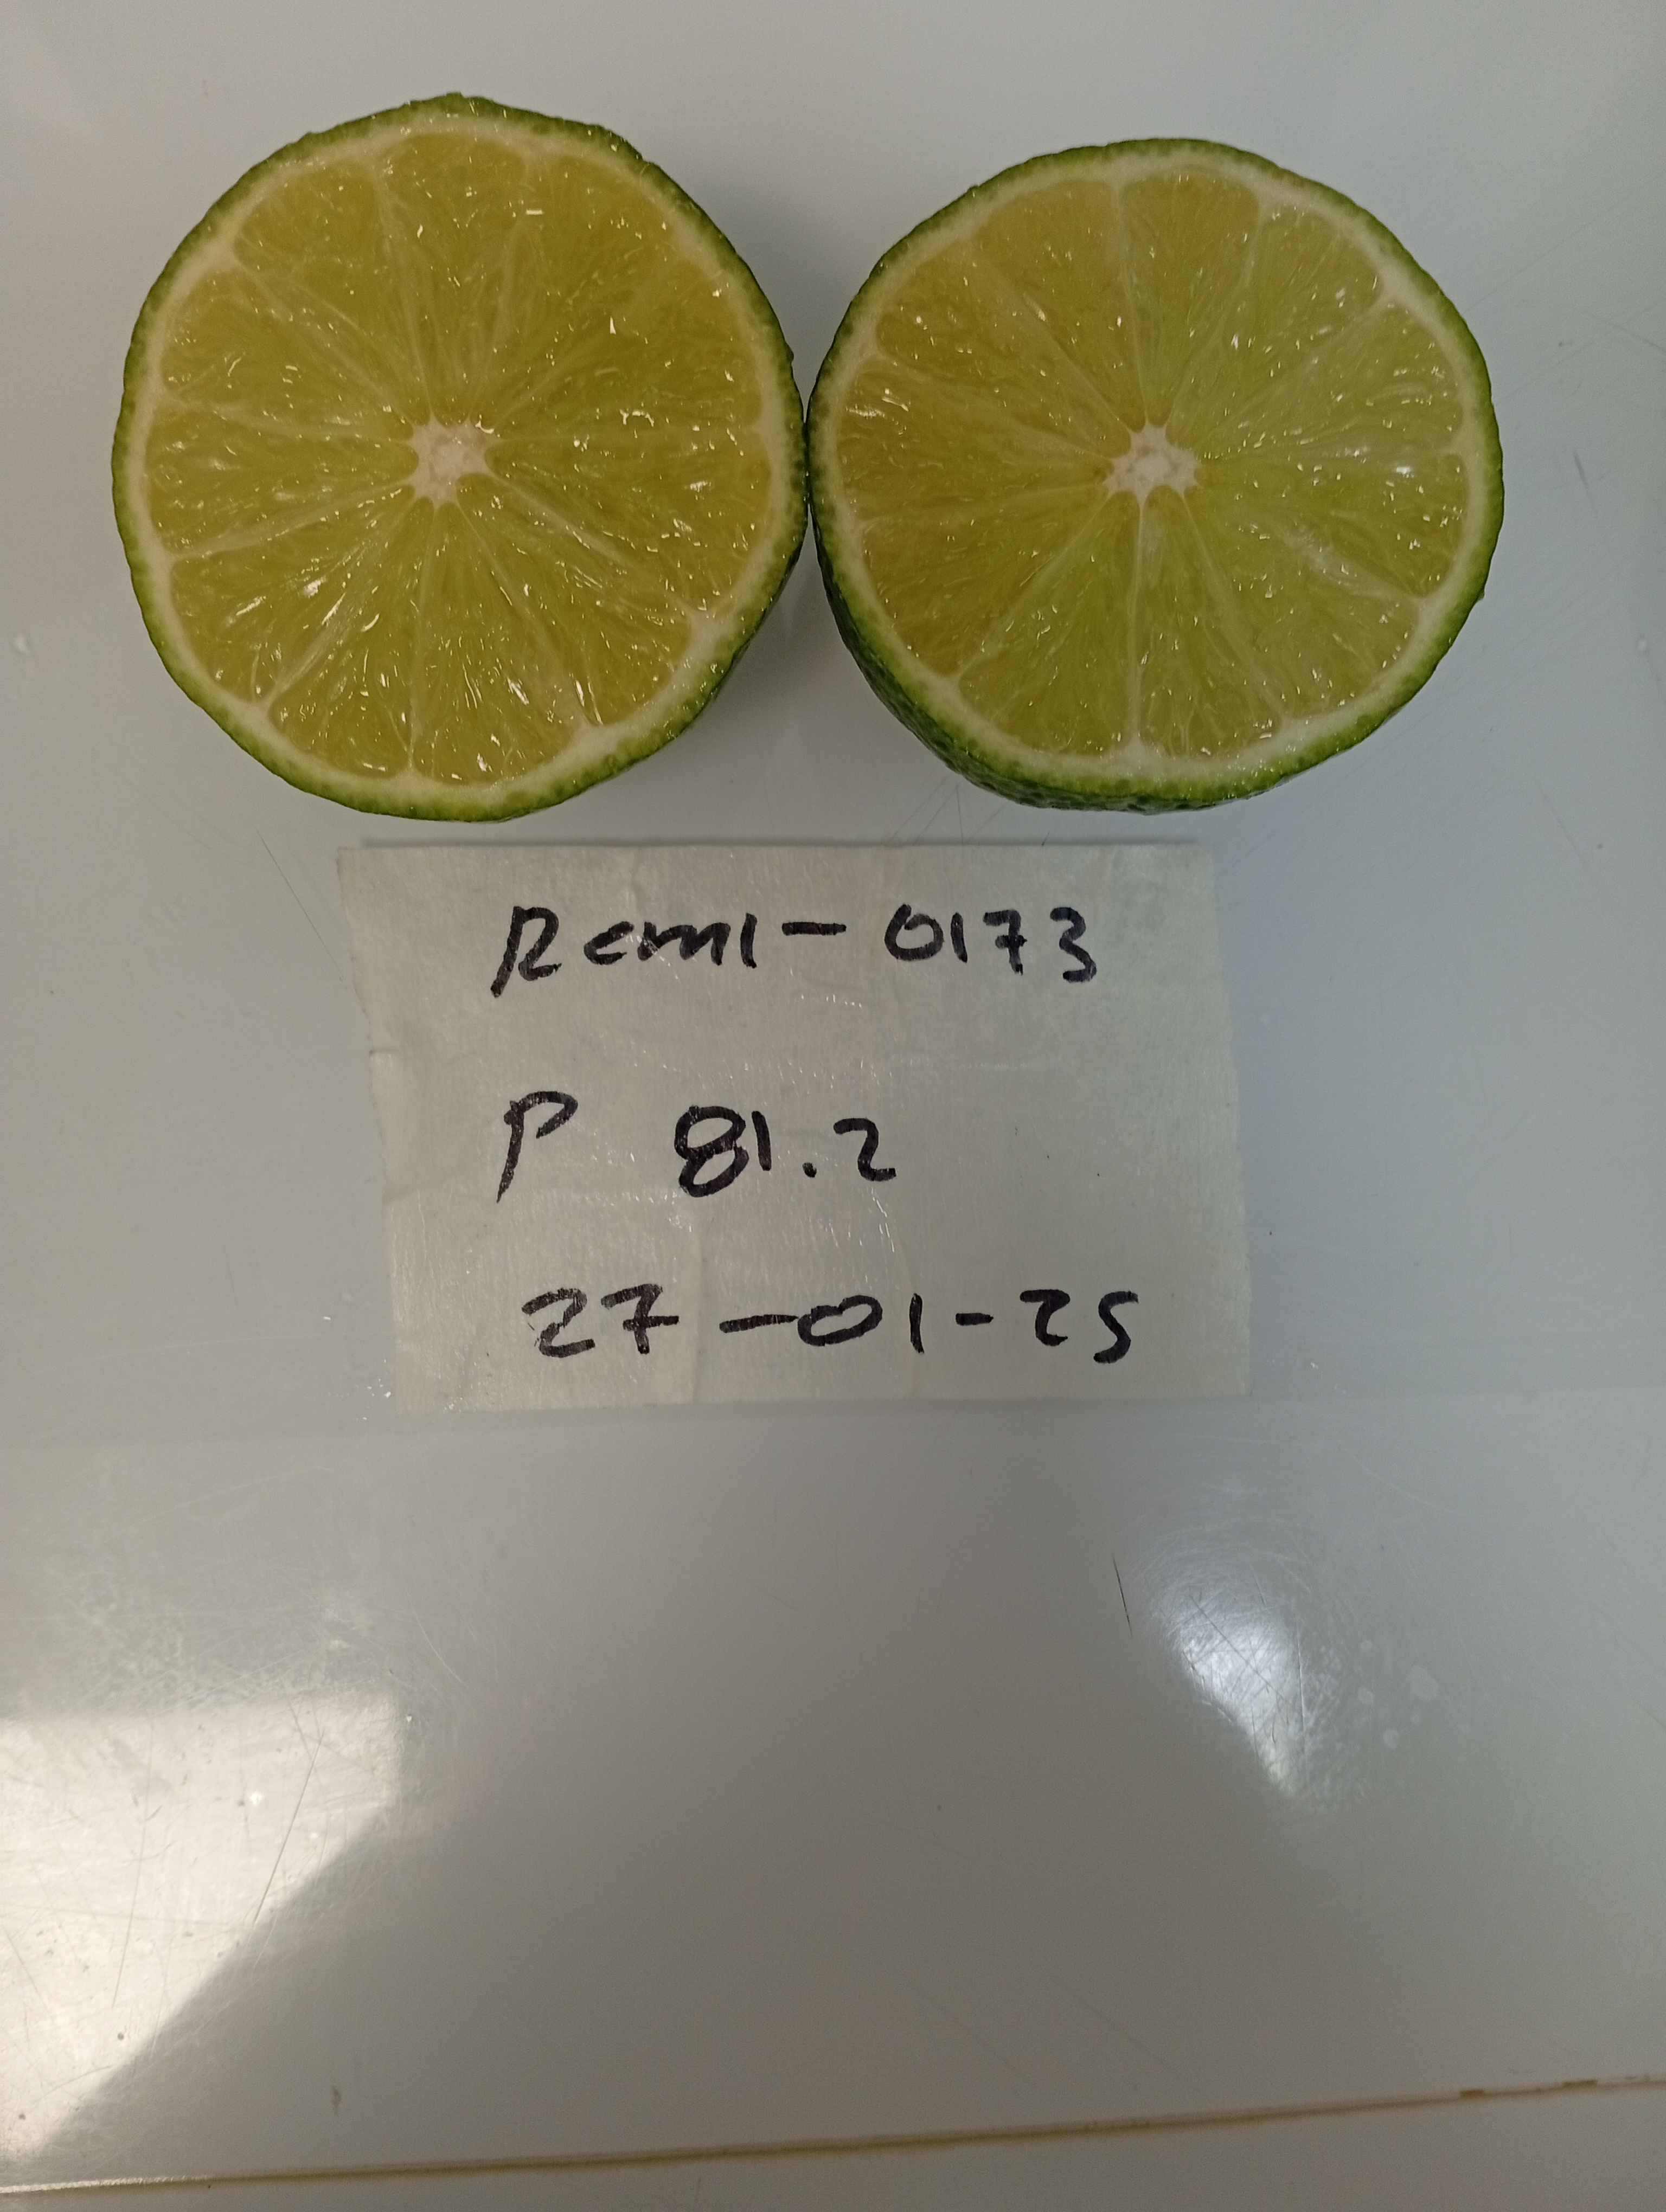 Rcml-0173
P 81.2
27-01-25